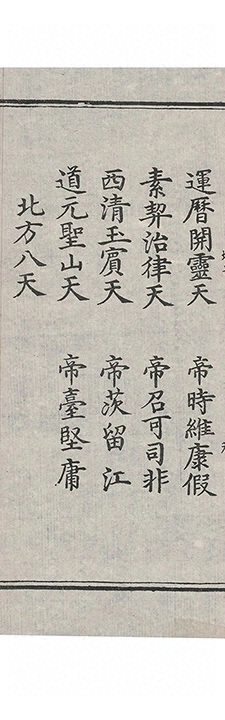 運曆開靈天　帝時維康假
素絜治律天　帝召可司非
西清玉賓天　帝茨留江
道元聖山天　帝臺堅庸
北方八天